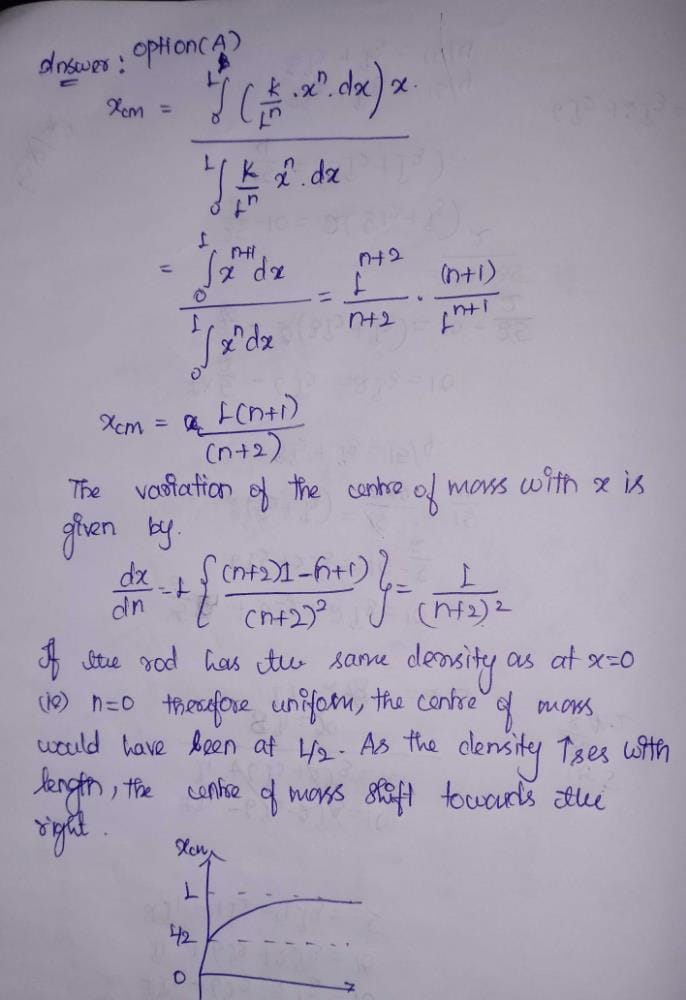 Answer: option(A)
x_cm = ∫₀ᴸ (k/Lⁿ · xⁿ · dx) x.
/ ∫₀ᴸ k/Lⁿ xⁿ. dx
= ∫₀ᴸ xⁿ⁺¹ dx / ∫₀ᴸ xⁿ dx = Lⁿ⁺²/n+2 · (n+1)/Lⁿ⁺¹
x_cm = L(n+1)/(n+2)
The variation of the centre of mass with x is
given by.
dx/dn = L { (n+2)1-(n+1)/(n+2)² } = L/(n+2)²
If the rod has the same density as at x=0
(ie) n=0 therefore uniform, the centre of mass
would have been at L/2. As the density ↑ses with
length, the centre of mass shift towards the
right.
x_cm
L
L/2
0